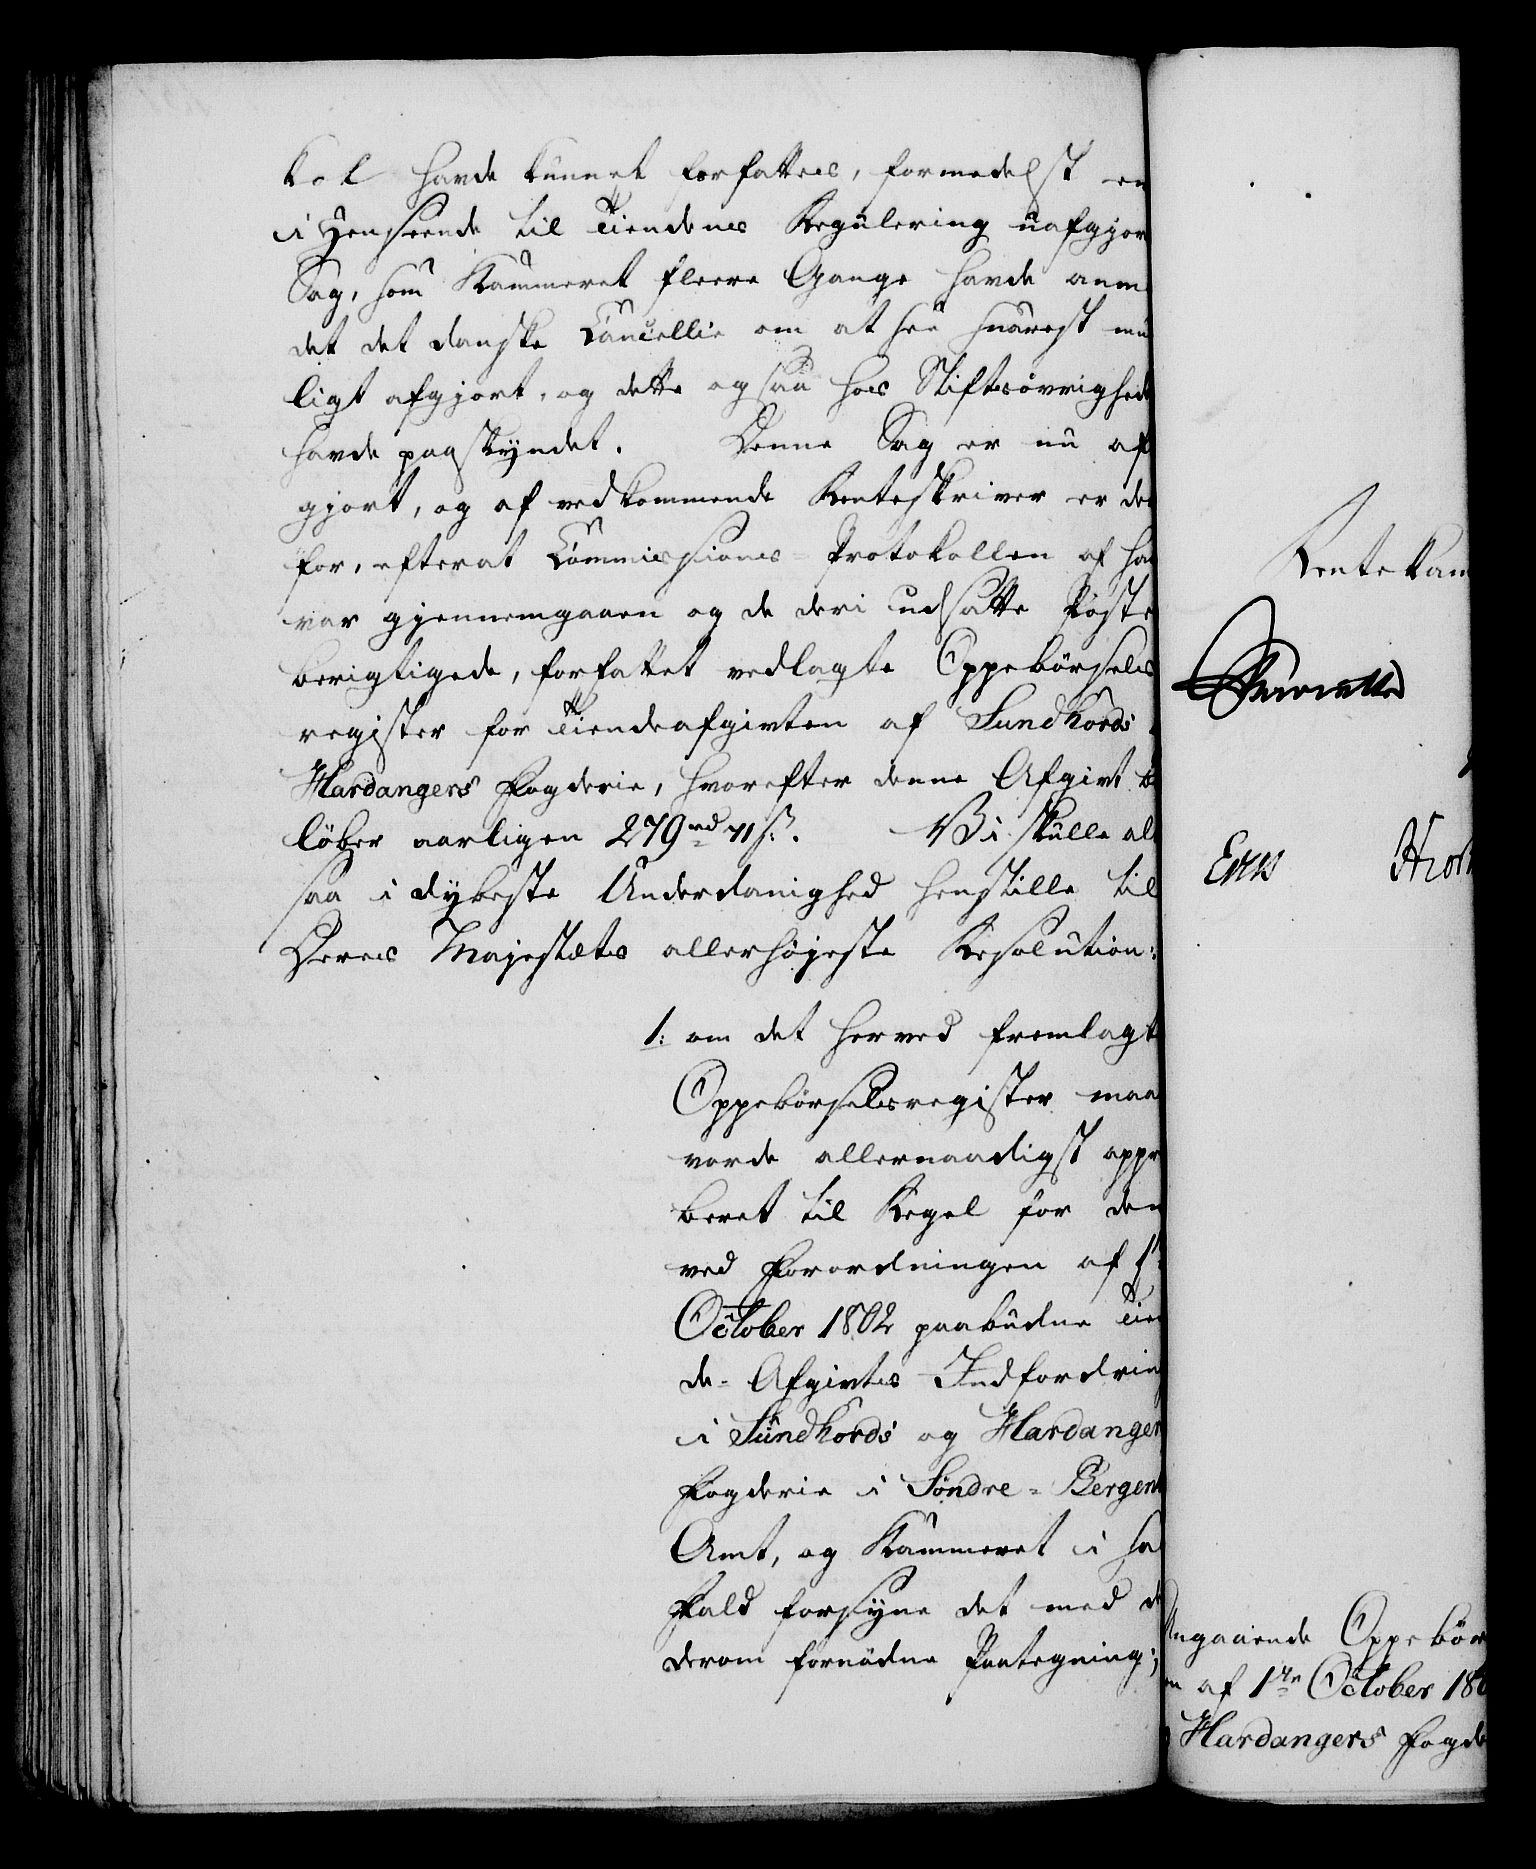 kol havde kunnet forfattes, formedelst en
i Henseende til Tiendens Regulering uafgjor
Sag, som Kammeret fleere Gange havde anm
det det danske Cancellie om at see snarest mu
ligt afgjort, og dette ogsaa hos Stiftsøvrighed
havde paaskyndet. Denne Sag er nu af
gjort, og af vedkommende Renteskriver er der
for, efterat Commissions-Protokollen af ham
var gjennemgaaen og de deri udsatte Poste
berigtigede, forfattet vedlagte Oppebørsels
register for Tiendeafgivten af Sundhords
Hardangers Fogderie, hvorefter denne Afgivt be
løber aarligen 279 rd 71 ß. Vi skulle alt
saa i dybeste Underdanighed henstille til
Deres Majestæts allerhøjeste Resolution:
1: om det herved fremlagt
Oppebørselsregister maa
vorde allernaadigst appr
beret til Regel for den
ved Forordningen af 1
October 1802 paabudne Tien
de-Afgivts Indfordring
i Sundhords og Hardanger
Fogderie i Søndre-Bergen
Amt, og Kammeret i saa
Fald forsyne det med d
derom fornødne Paategning;
Rentekam
Erns Hior
Angaaende Oppebør
n af 1te October 180
Hardangers Fogde